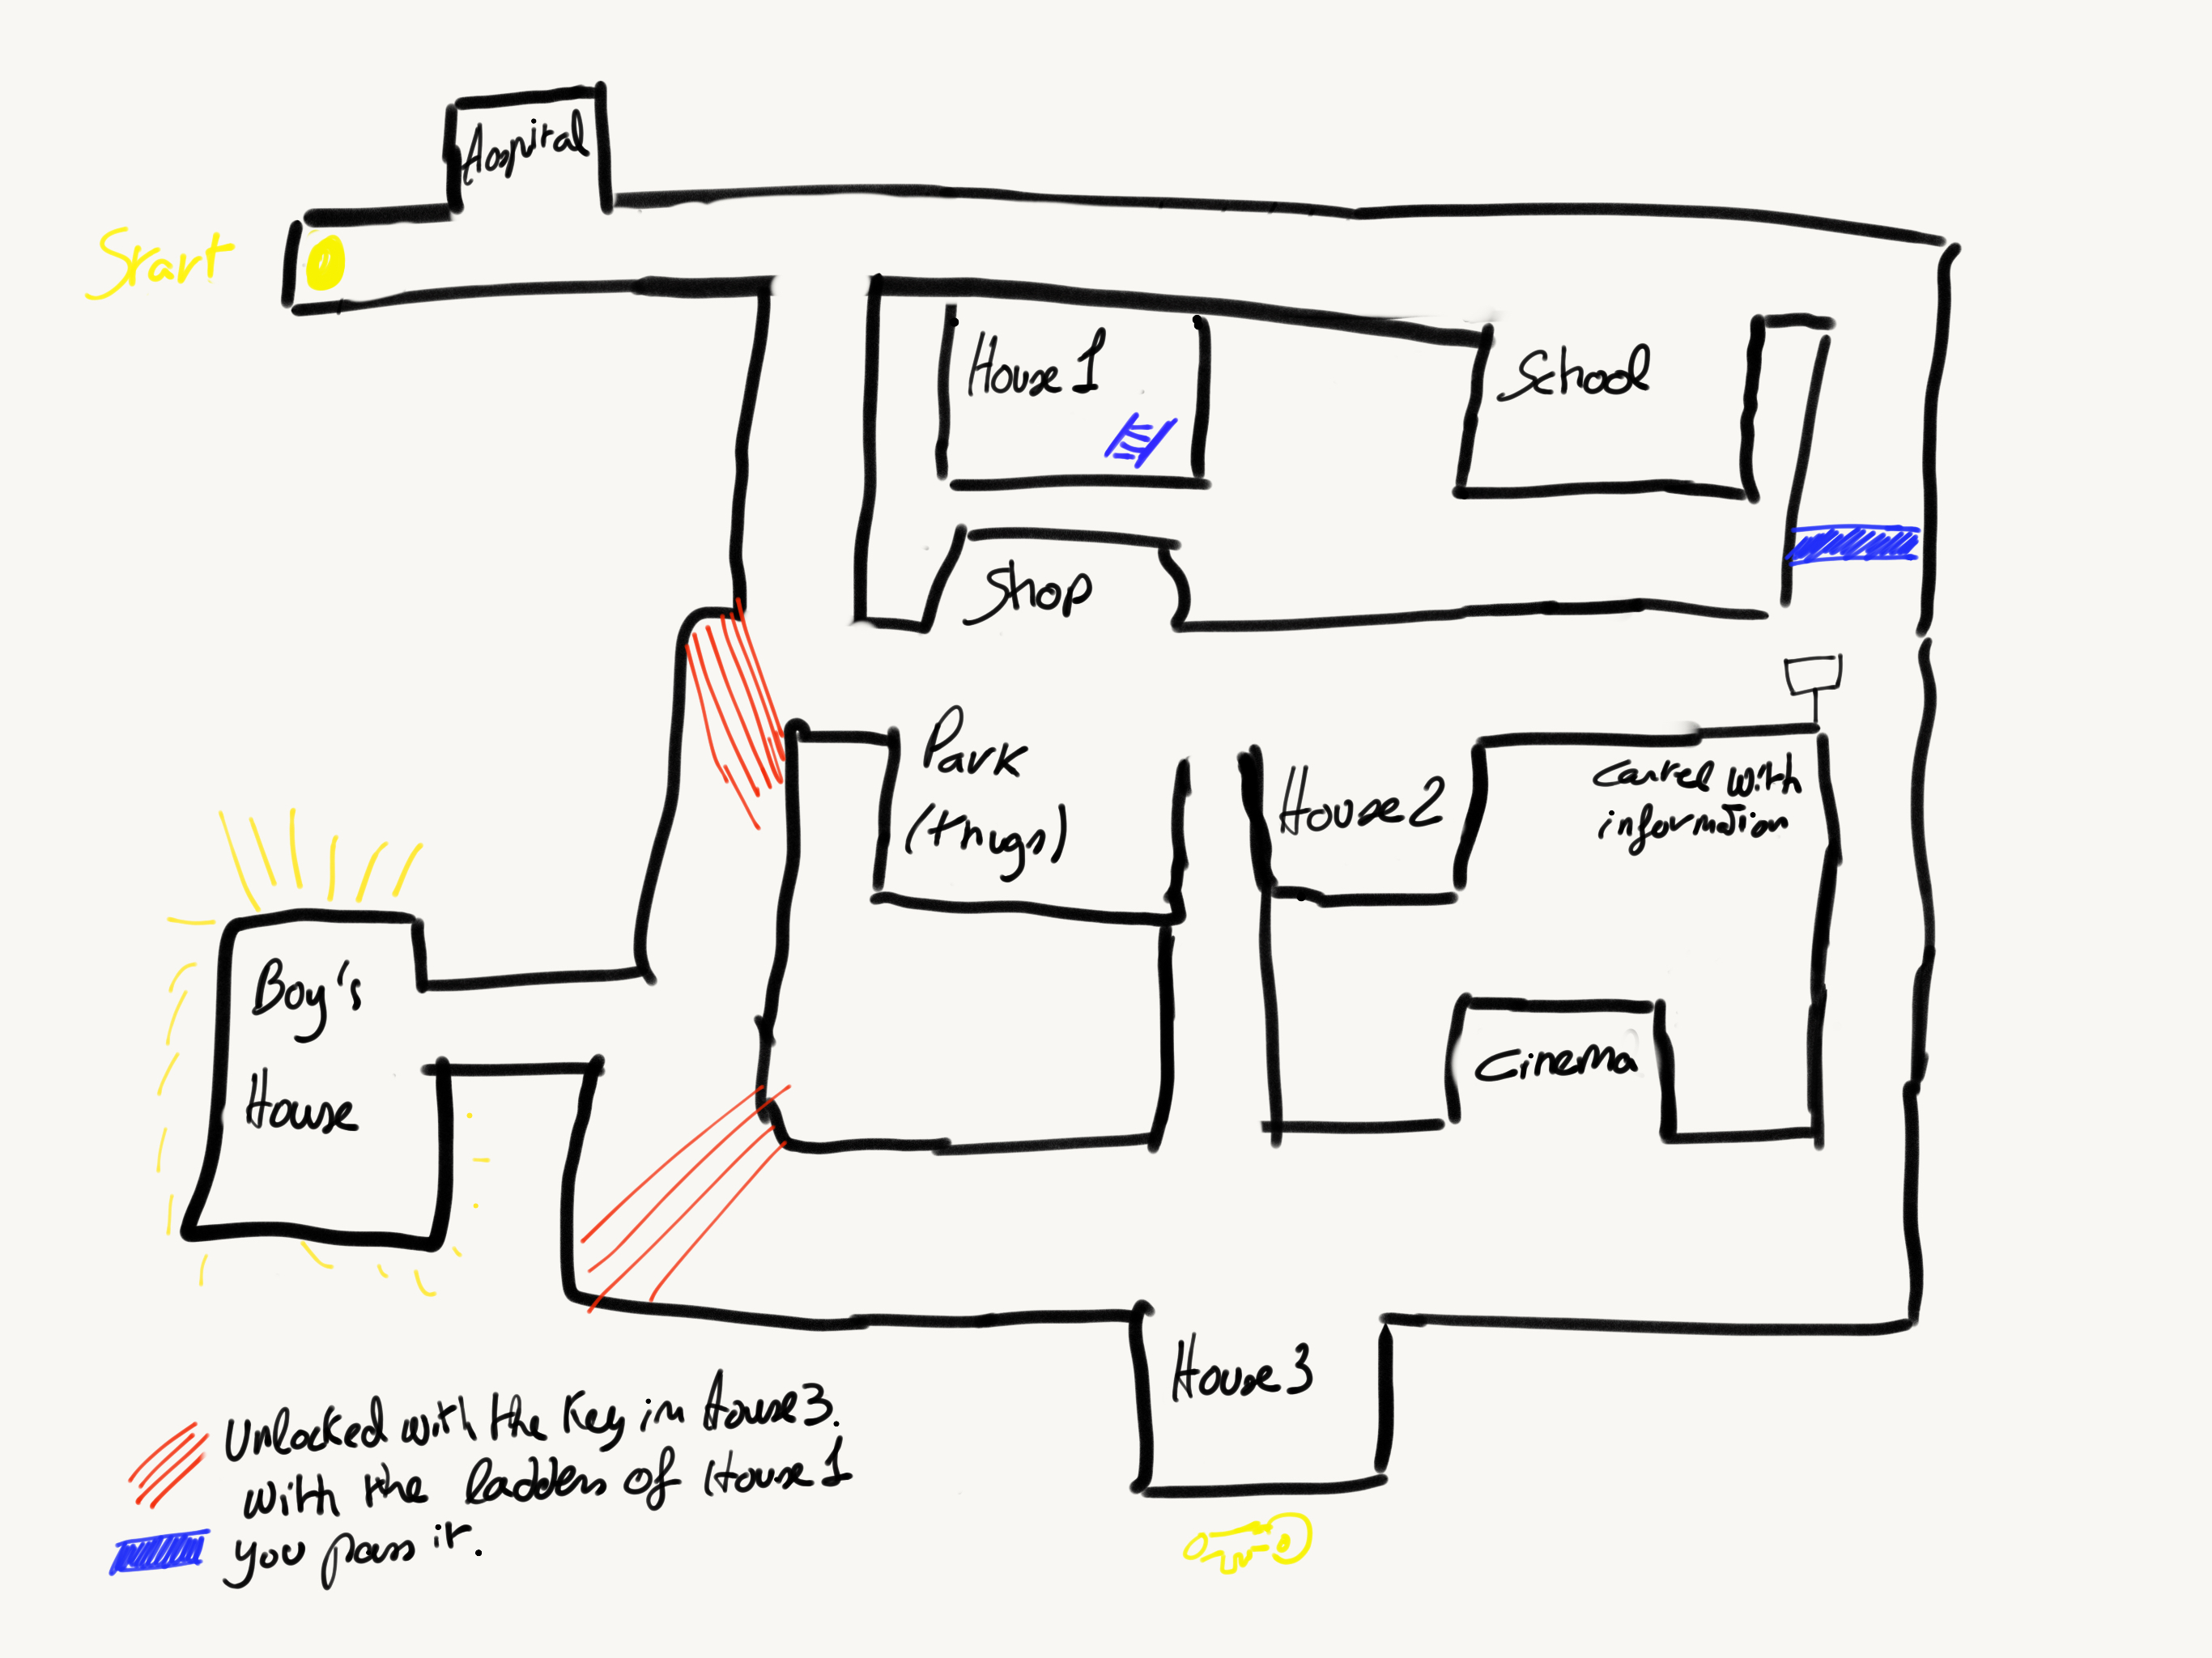 Hospital
Start
House 1
School
Shop
Park
(thugs)
House 2
Cartel with
information
Boy's
House
Cinema
House 3
Unlocked with the key in House 3.
with the ladders of House 1
you pass it.